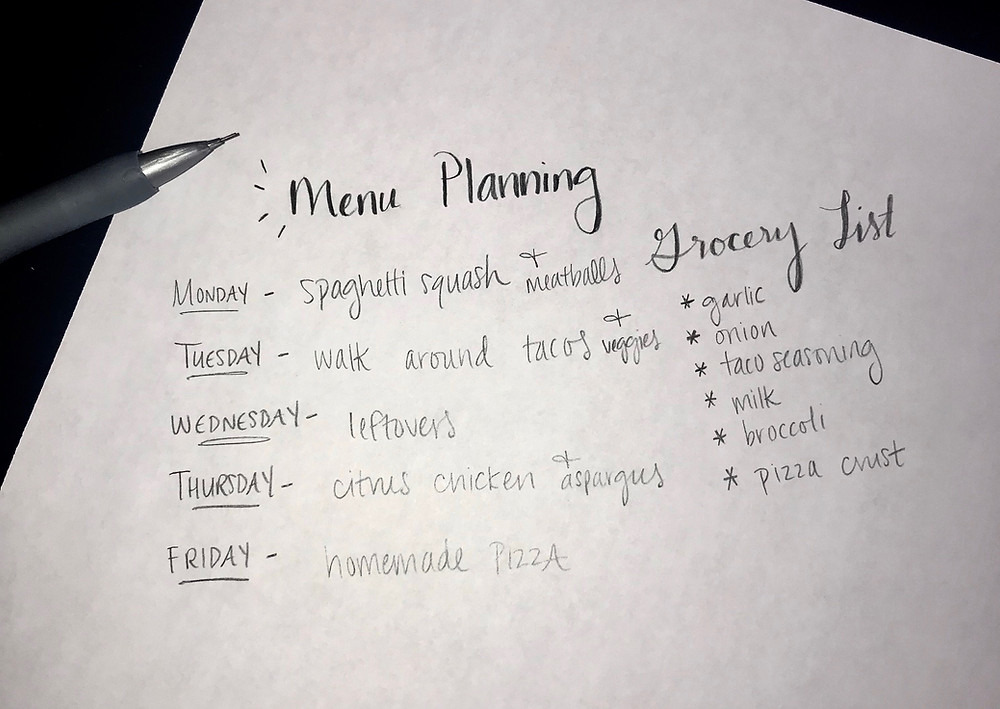 Menu Planning
MONDAY - spaghetti squash & meatballs
TUESDAY - walk around tacos & veggies
WEDNESDAY - leftovers
THURSDAY - citrus chicken & aspargus
FRIDAY - homemade PIZZA
Grocery List
* garlic
* onion
* taco seasoning
* milk
* broccoli
* pizza crust